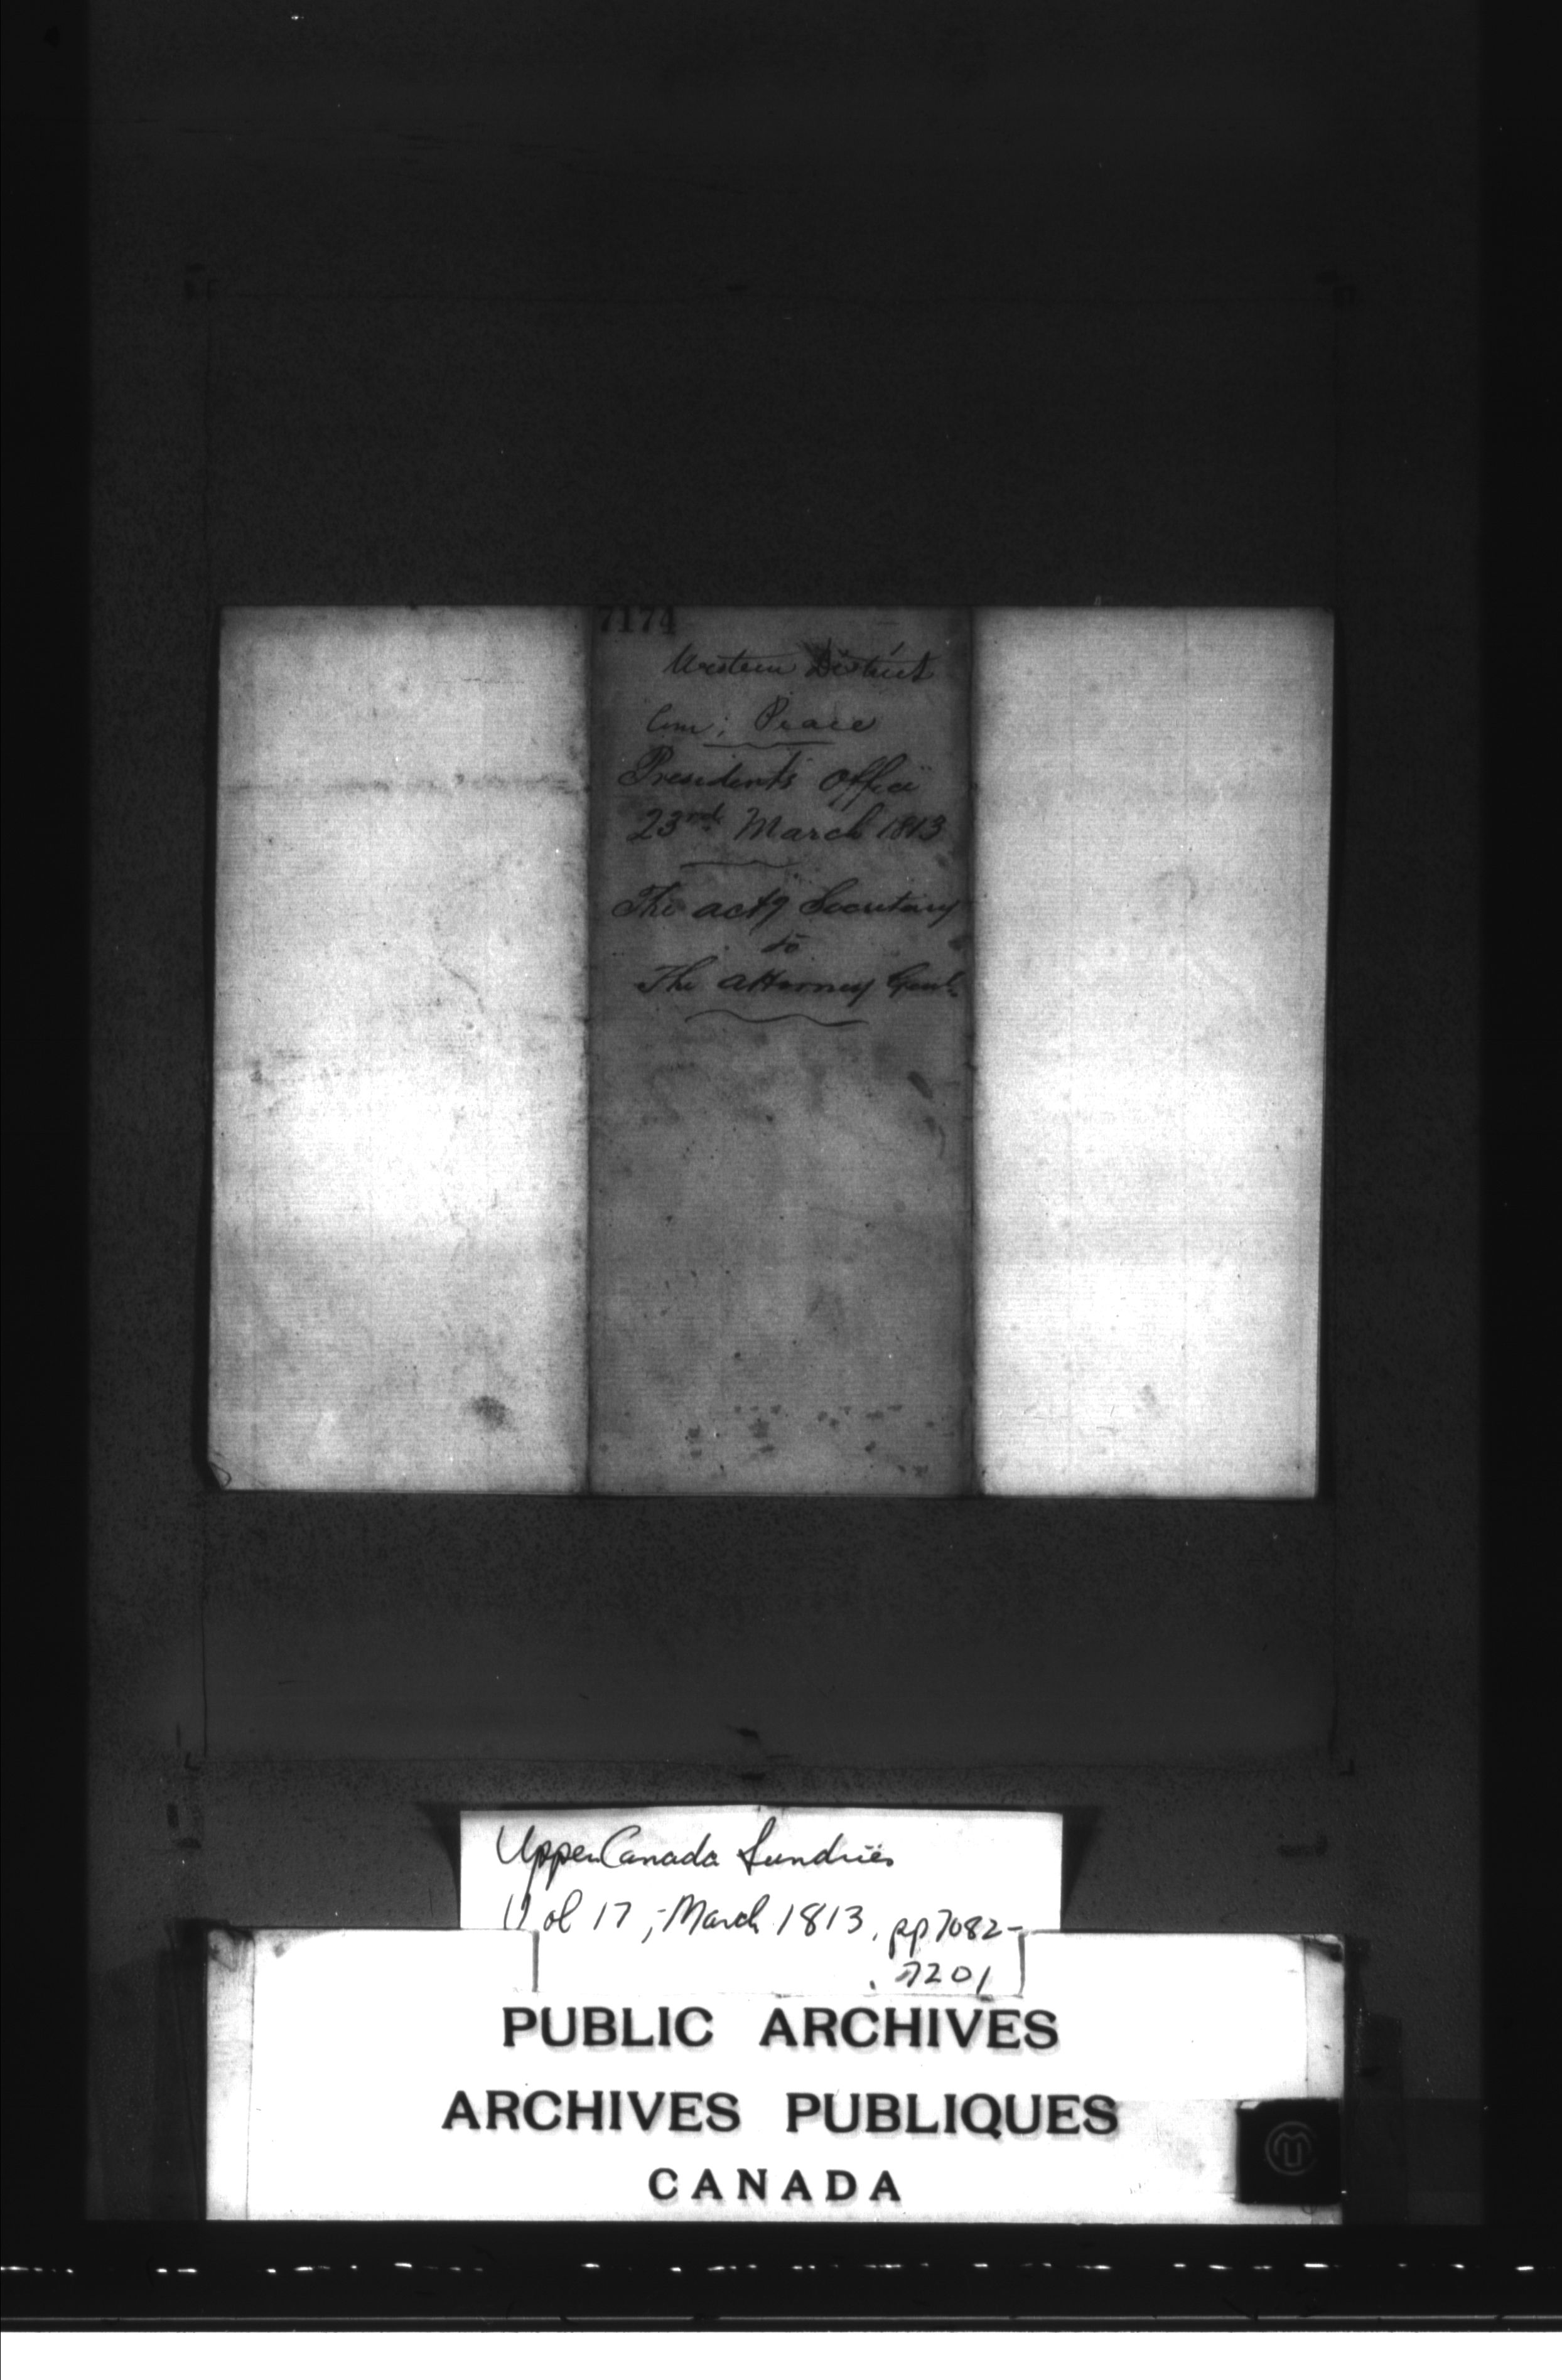 7174
Western District
Com; Peace
Presidents Office
23rd March 1813
The actg Secretary
to
The Attorney Genl.
Upper Canada Sundries
Vol 17, March 1813, pp 7082-
7201
PUBLIC ARCHIVES
ARCHIVES PUBLIQUES
CANADA